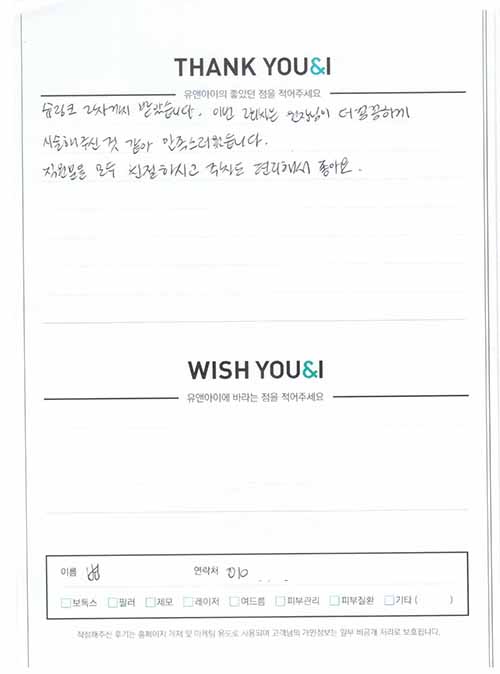 THANK YOU&I
유앤아이의 좋았던 점을 적어주세요
슈링크 2차까지 받았습니다. 이번 2회차는 원장님이 더 꼼꼼하게
시술해주신 것 같아 만족스러웠습니다.
직원분들 모두 친절하시고 위치도 편리해서 좋아요.
WISH YOU&I
유앤아이에 바라는 점을 적어주세요
이름 연락처 010
보톡스 필러 제모 레이저 여드름 피부관리 피부질환 기타 ( )
작성해주신 후기는 홈페이지 게재 및 마케팅 용도로 사용되며 고객님의 개인정보는 일부 비공개 처리로 보호됩니다.